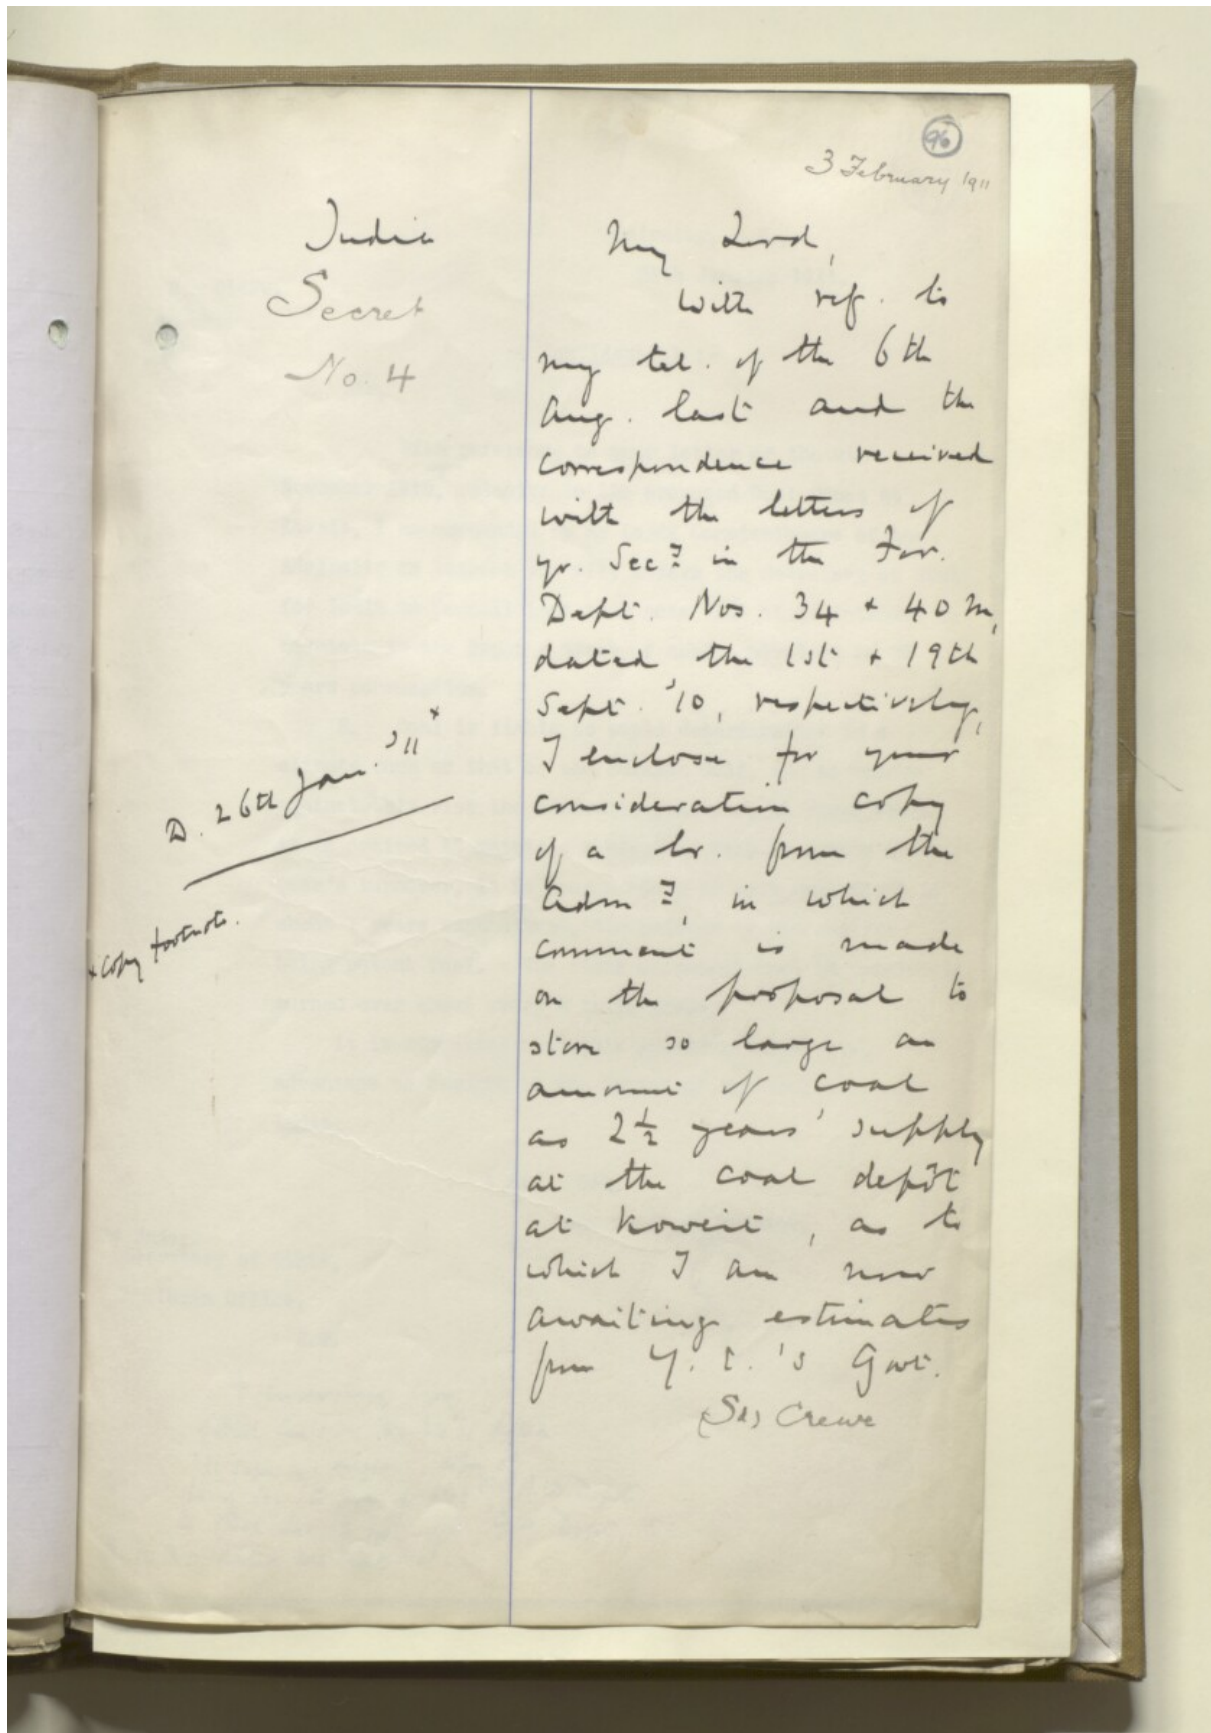 96
3 February 1911
India
Secret
No. 4
My Lord,
with ref. to
my tel. of the 6th
Aug. last and the
correspondence received
with the letters of
yr. Secy. in the For.
Dept. Nos. 34 + 40 M,
dated the 1st + 19th
Sept. '10, respectively,
I enclose for your
consideration copy
of a lr. from the
Admy., in which
comment is made
on the proposal to
store so large an
amount of coal
as 2½ years' supply
at the coal depôt
at Koweit, as to
which I am now
awaiting estimates
from Y. E.'s Govt.
(Sd) Crewe
D. 26th Jan. '11 x
x copy footnote.